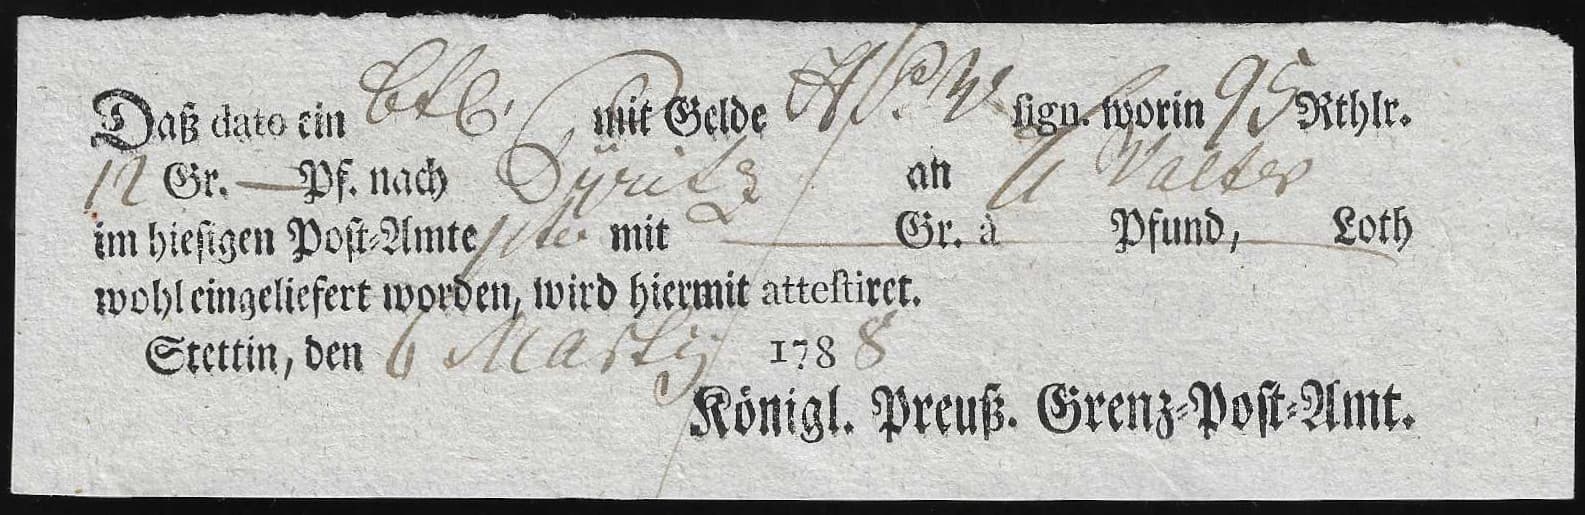 Daß dato ein Btl. mit Gelde H P W sign. worin 95 Rthlr.
12 Gr. — Pf. nach Pyritz an Walter
im hiesigen Post-Amte mit — Gr. à Pfund, — Loth
wohl eingeliefert worden, wird hiermit attestiret.
Stettin, den 6 Martij 1788
Königl. Preuß. Grenz-Post-Amt.